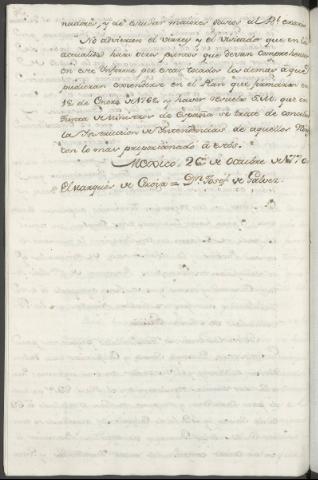 nadores, y de escusar maiores gastos al Rl. erario
No advierten el Virrey y el Visitador que en lo
actual haia otros puntos que devan comprehenderse
en este Informe por estar tocados los demas á que
pudieran extenderse en el Plan que formaron en
15 de Enero de 768, y haver resuelto S.M. que en
Junta de Ministros de España se trate de concluir
la Instruccion de Intendencias de aquellos
con lo mas proporcionado á ellos.
Mexico 26 de Octubre de
El Marques de Croix = Dn. Josef de Galvez.